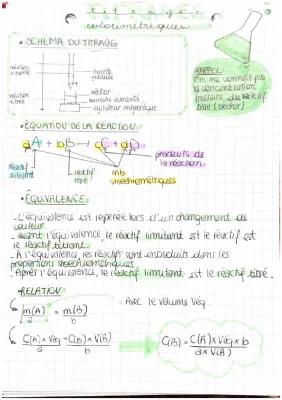 titrages
colorimétriques
• SCHÉMA DU TITRAGE
solution titrante
burette graduée
solution titrée
bécher
barreau aimanté
agitateur magnétique
RAPPEL:
On ne connaît pas
la concentration
molaire du réactif
titré (bécher)
• ÉQUATION DE LA RÉACTION
aA + bB → cC + dD
produits de
la réaction
réactif
titrant
réactif
titré
nb
stoechiométriques
• ÉQUIVALENCE
- L'équivalence est repérée lors d'un changement de
couleur.
- avant l'équivalence, le réactif limitant est le réactif est
le réactif titrant.
- À l'équivalence, les réactifs sont introduits dans les
proportions stoechiométriques
- Après l'équivalence, le réactif limitant est le réactif titré.
• RELATION
n(A)/a = n(B)/b
Avec le volume Véq
C(A) × Véq/a = C(B) × V(B)/b
C(B) = C(A) × Véq × b / a × V(B)